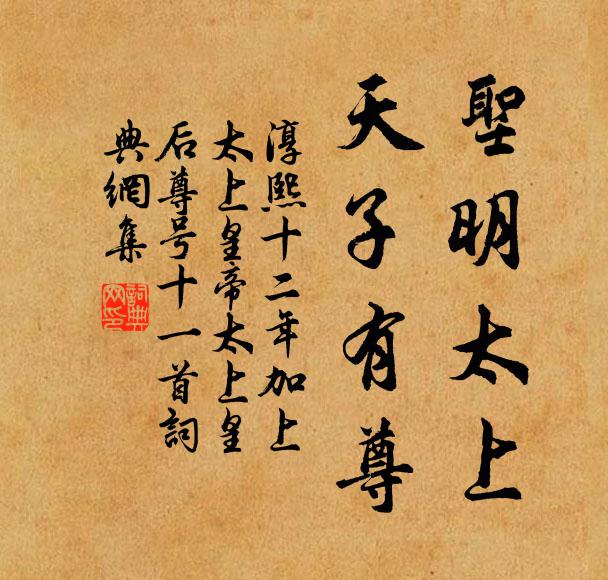 聖明太上
天子有尊
淳熙十二年加上
太上皇帝太上皇
后尊号十一首詞
典網集
詞典
网印